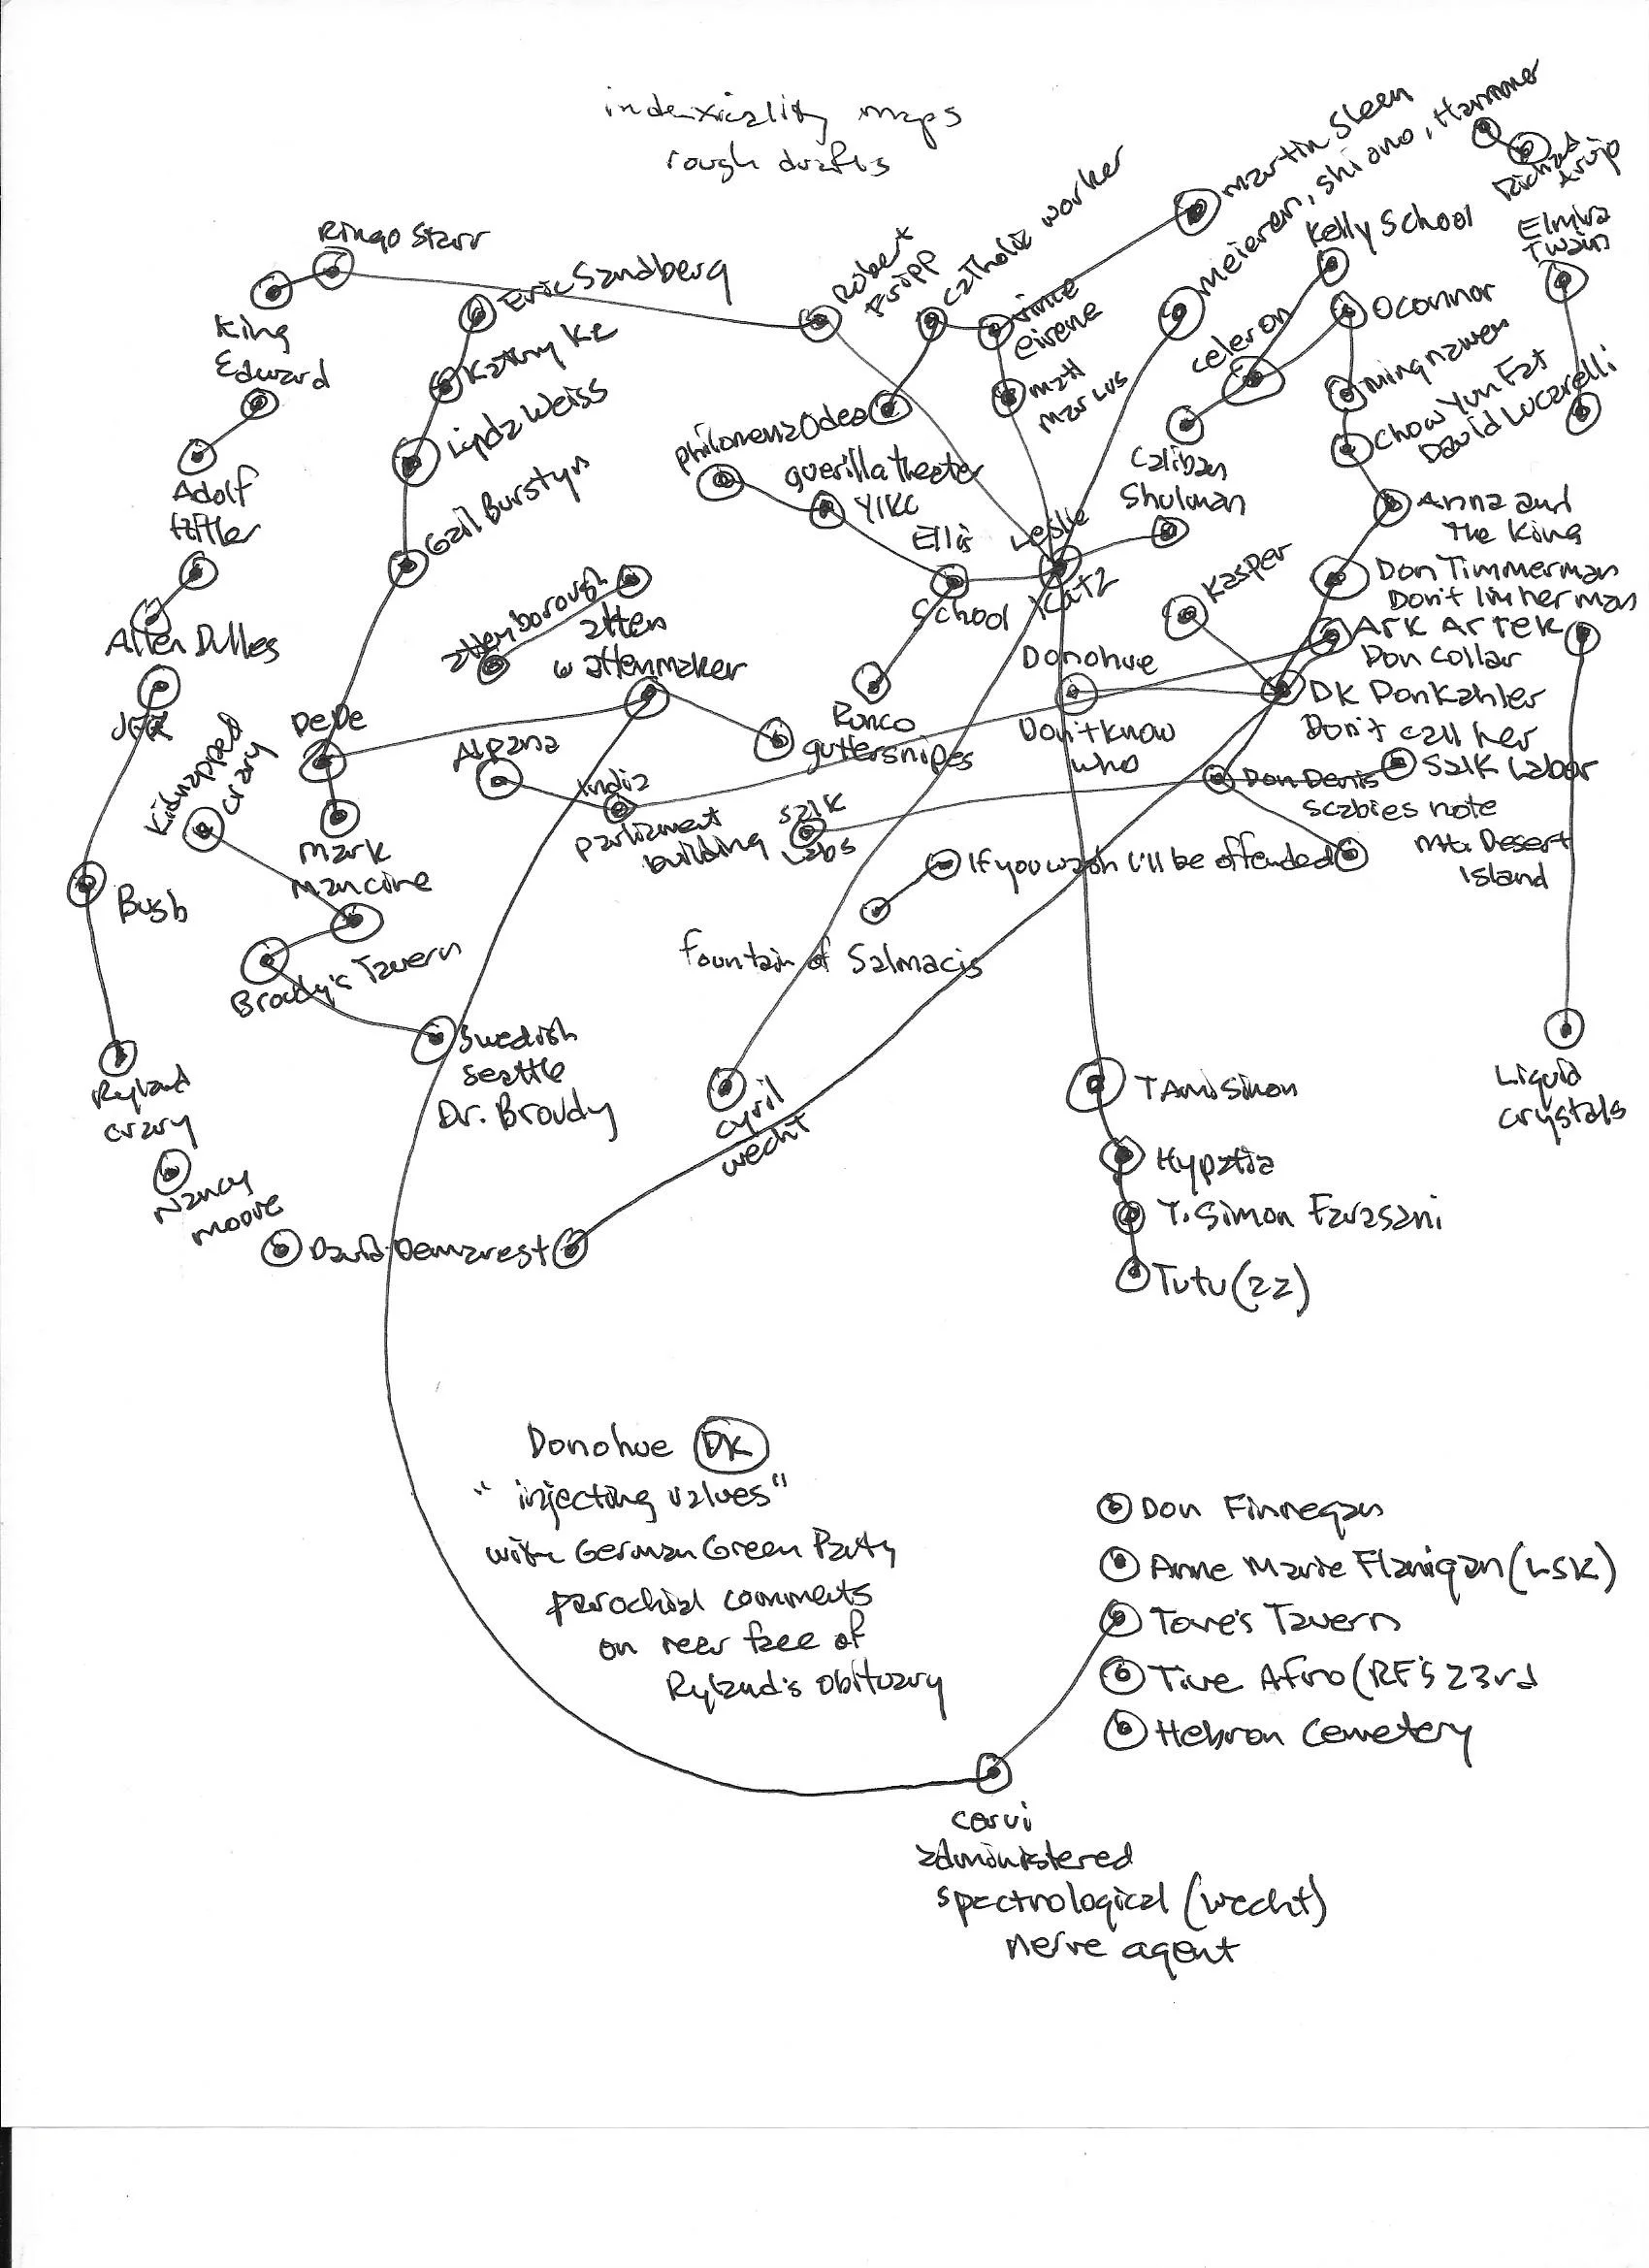 indexicality maps
rough drafts
Ringo Starr
King
Edward
Adolf
Hitler
Allen Dulles
JFK
Bush
Ryland
crary
Nancy
Moore
Eric Sandberg
Kathy Ke
Lynda Weiss
Gail Burstyn
DeDe
Mark
Mancine
Kidnapped
crary
Broudy's Tavern
Swedish
Seattle
Dr. Broudy
David Demarest
attenborough
atten
wattenmaker
guttersnipes
Alpana
India
parliament
building
Salk
Labs
Robert
Fripp
Catholic worker
Vince
Eirene
Matt
Marcus
Martin Sheen
Meieran, Shiano, Hammer
Philomena Odea
guerilla theater
YIKC
Ellis
School
Ronco
Leslie
Katz
Kelly School
Celeron
Caliban
Shulman
Oconnor
Mingnawen
Chow Yun Fat
David Lucarelli
Anna and
The King
Richard
Arvip
Elmira
Twain
Kasper
Don Timmerman
Don't limherman
Ark Artek
Don Collar
DK Donkahler
Don't call her
Donohue
Don't know
who
Don Denis
Salk Labor
scabies note
Mt. Desert
Island
If you wash I'll be offended
Fountain of Salmacis
Cyril
Wecht
Liquid
crystals
TAmi Simon
Hypatia
T. Simon Farasani
Tutu (22)
Donohue DK
"injecting values"
with German Green Party
parochial comments
on rear face of
Ryland's obituary
Don Finnegan
Anne Marie Flanigan (LSK)
Tove's Tavern
Tive Afro (RF's 23rd
Hebron Cemetery
corvi
administered
spectrological (wecht)
nerve agent